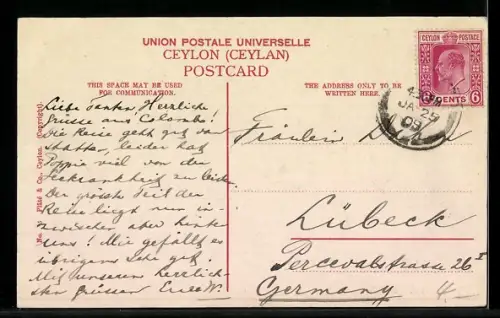 UNION POSTALE UNIVERSELLE
CEYLON (CEYLAN)
POSTCARD
THIS SPACE MAY BE USED
FOR COMMUNICATION.
THE ADDRESS ONLY TO BE
WRITTEN HERE.
CEYLON POSTAGE
6 CENTS 6
JA 29
09
Plâté & Co., Ceylon. (Copyright).
No.
Liebe Herrliche
Grüsse aus Colombo!
Die Reise geht gut von
statten, leider hat
Poppie viel von der
Seekrankheit zu leiden.
Der grösste Teil der
Reise liegt nun in-
zwischen aber hinter
uns! Mir gefällt es
übrigens sehr gut.
Mit unseren herzlich-
sten Grüssen W.
Fräulein
Lübeck
Percevalstrasse 26 I
Germany
4